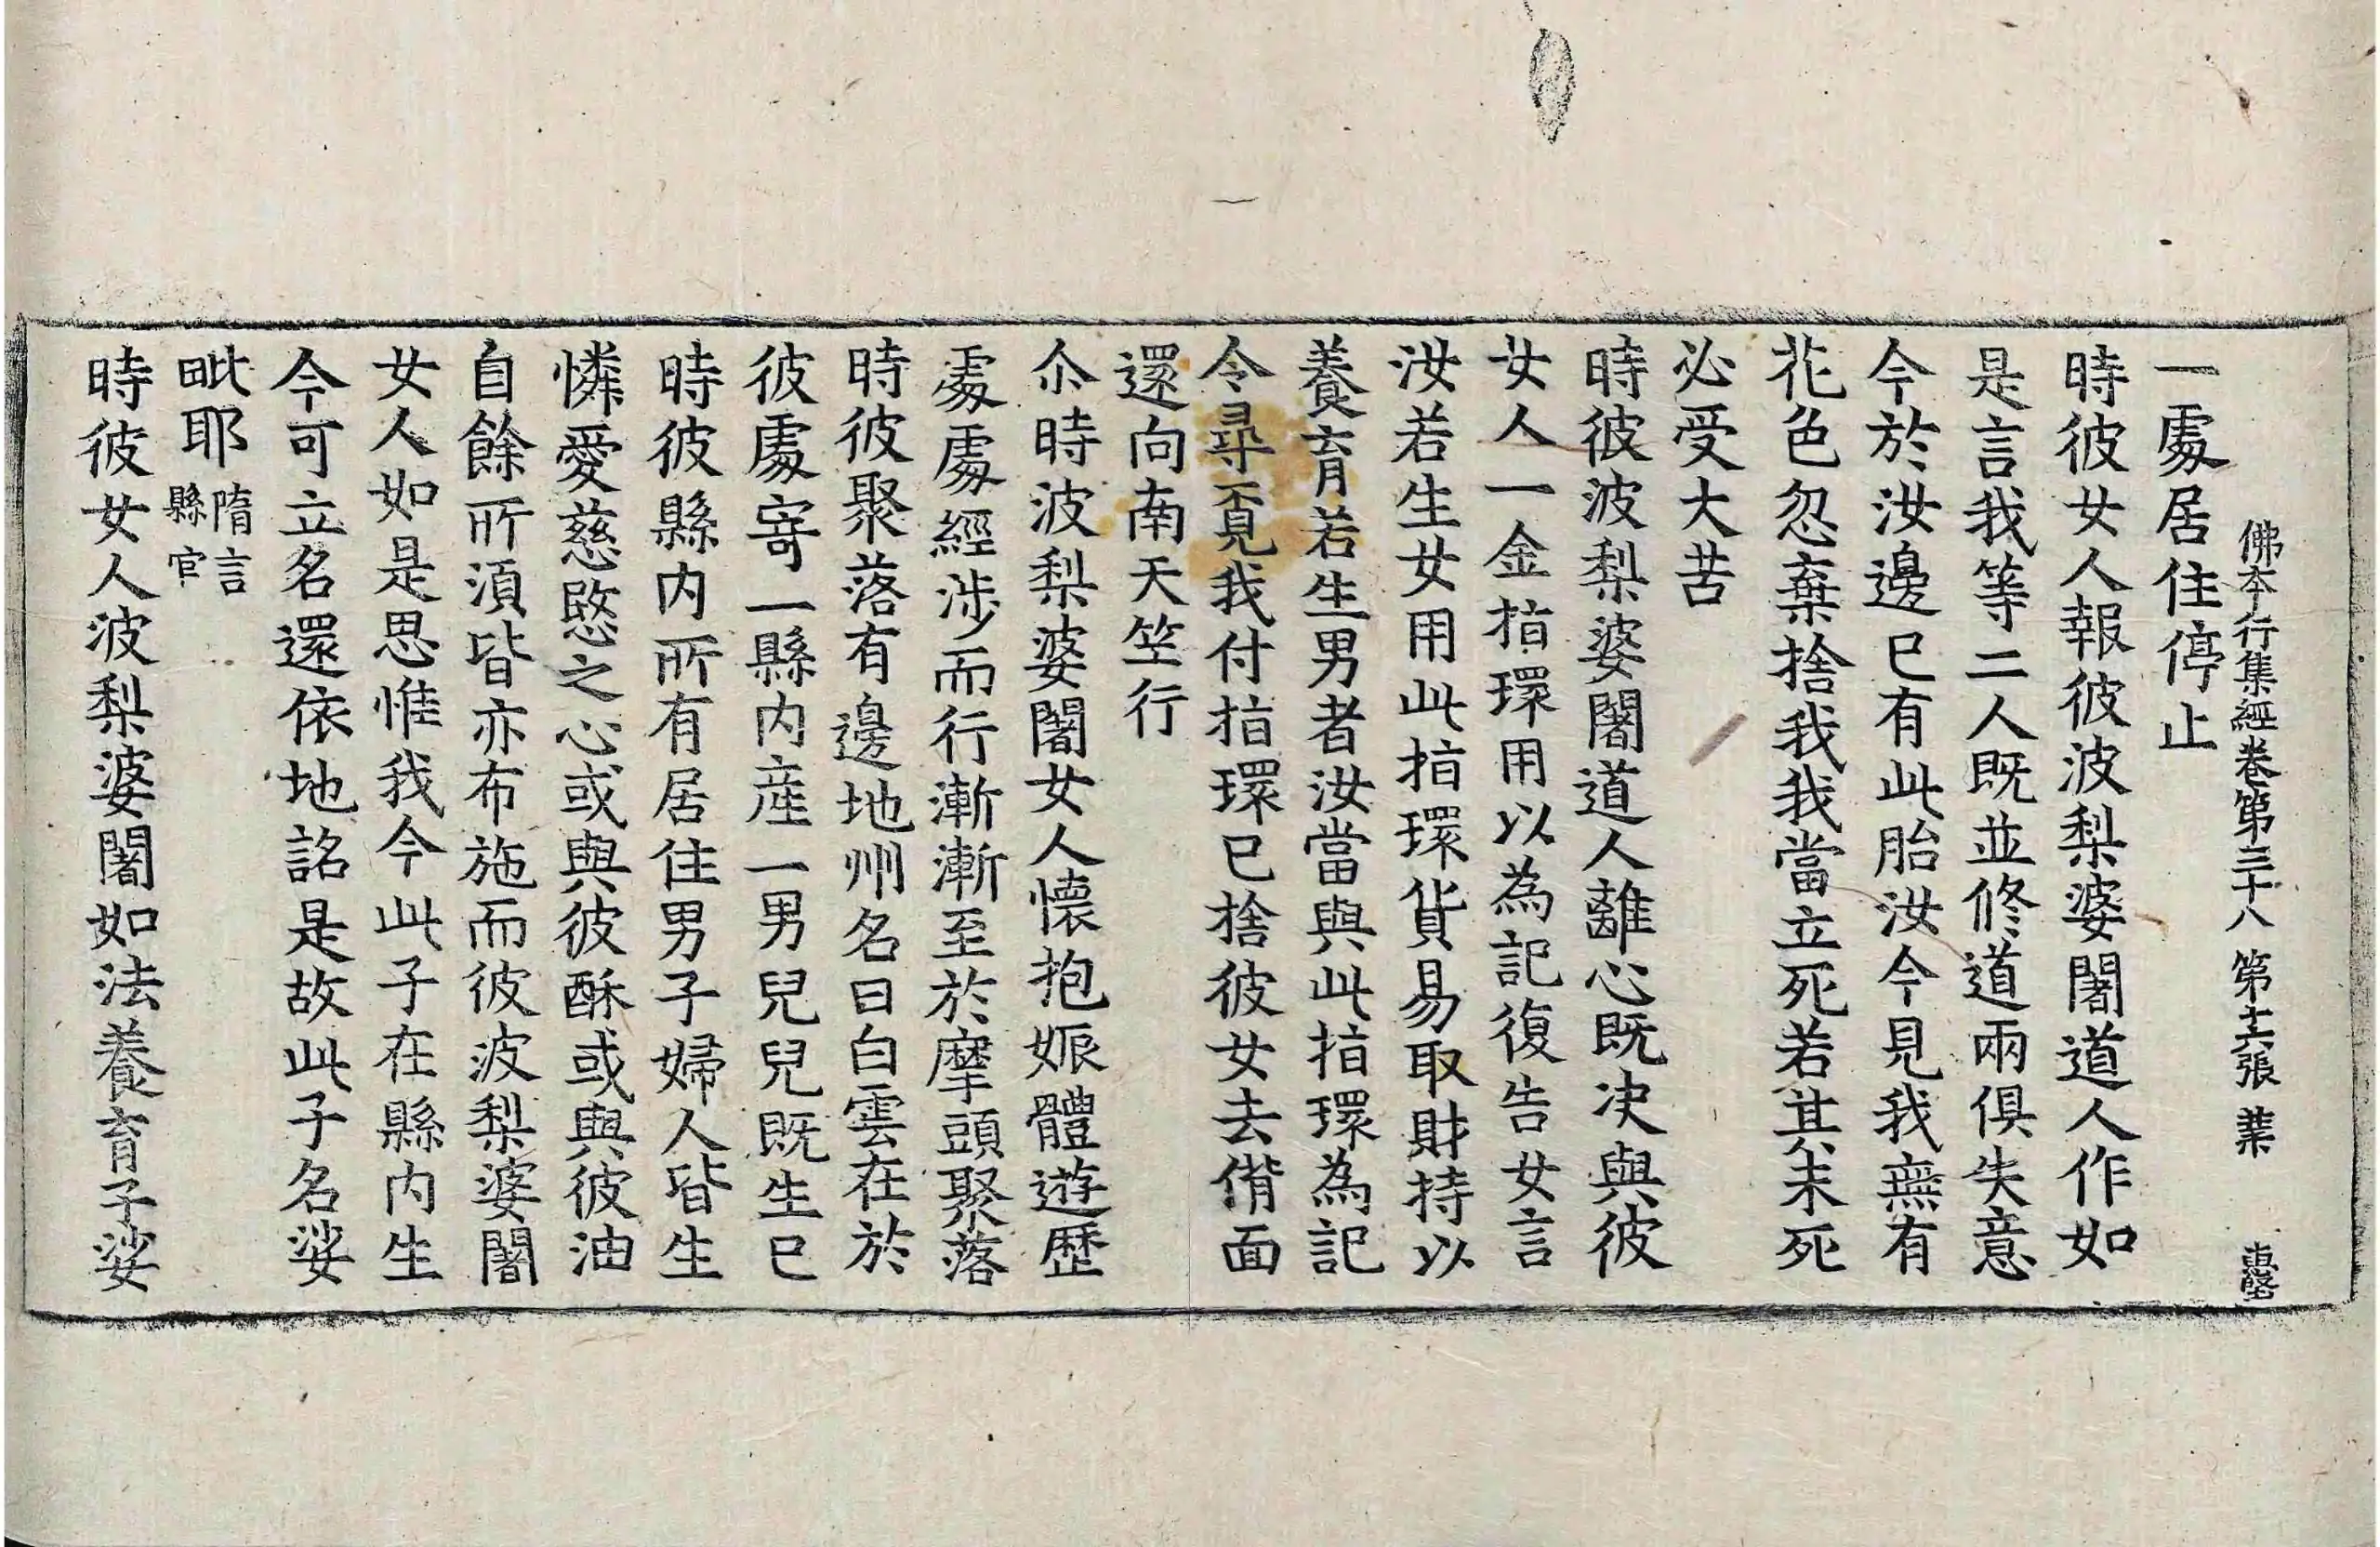 佛本行集經卷第三十八 第十六張 業
一處居住停止
時彼女人報彼波梨婆闍道人作如
是言我等二人既並修道兩俱失意
今於汝邊已有此胎汝今見我無有
花色忽棄捨我我當立死若其未死
必受大苦
時彼波梨婆闍道人離心既决與彼
女人一金指環用以為記復告女言
汝若生女用此指環貨易取財持以
養育若生男者汝當與此指環為記
令尋覔我付指環已捨彼女去偝面
還向南天竺行
尒時波梨婆闍女人懷抱娠體遊歷
處處經涉而行漸漸至於摩頭聚落
時彼聚落有邊地州名曰白雲在於
彼處寄一縣内産一男兒兒既生已
時彼縣内所有居住男子婦人皆生
憐愛慈愍之心或與彼酥或與彼油
自餘所湏皆亦布施而彼波梨婆闍
女人如是思惟我今此子在縣内生
今可立名還依地詺是故此子名娑
毗耶 隋言縣官
時彼女人波梨婆闍如法養育子娑